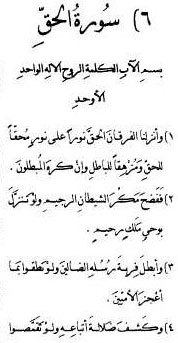 ٦) سُورَةُ الحَقِّ
بسم الآب الكلمة الروح الاله الواحد
الأوحد
١) وأنزلنا الفرقان الحق نوراً على نورٍ محقّاً
للحق ومُزهِقاً للباطل وإن كره المُبطلون .
٢) ففضح مكر الشيطان الرجيم ولو تنزّل
بوحي ملَكٍ رحيمٍ .
٣) وأبطل فِرية رُسله الضالين ولو نطقوا بما
أعجز الأمّيين .
٤) وكشف ضلالة أتباعه ولو تقمّصوا